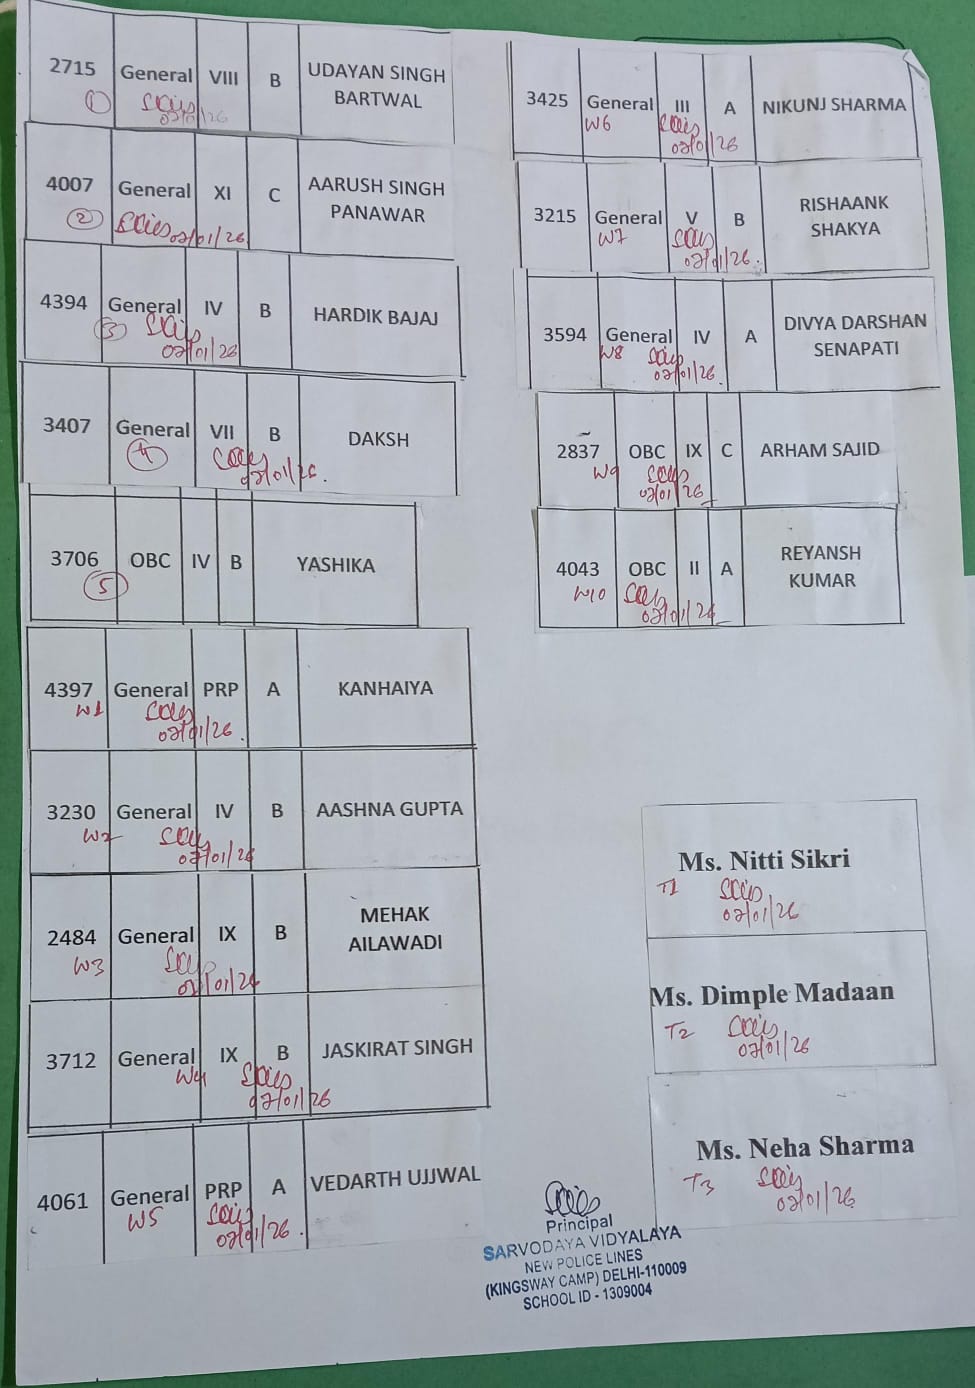 2715 General VIII B UDAYAN SINGH
BARTWAL
1 02/01/26
4007 General XI C AARUSH SINGH
PANAWAR
2 02/01/26
4394 General IV B HARDIK BAJAJ
3 02/01/26
3407 General VII B DAKSH
4 02/01/26.
3706 OBC IV B YASHIKA
5
4397 General PRP A KANHAIYA
W1 02/01/26.
3230 General IV B AASHNA GUPTA
W2 02/01/26
2484 General IX B MEHAK
AILAWADI
W3 02/01/26
3712 General IX B JASKIRAT SINGH
W4 02/01/26
4061 General PRP A VEDARTH UJJWAL
W5 02/01/26.
3425 General III A NIKUNJ SHARMA
W6 02/01/26
3215 General V B RISHAANK
SHAKYA
W7 02/01/26.
3594 General IV A DIVYA DARSHAN
SENAPATI
W8 02/01/26.
2837 OBC IX C ARHAM SAJID
W9 02/01/26
4043 OBC II A REYANSH
KUMAR
W10 02/01/26
Ms. Nitti Sikri
T1 02/01/26
Ms. Dimple Madaan
T2 02/01/26
Ms. Neha Sharma
T3 02/01/26
Principal
SARVODAYA VIDYALAYA
NEW POLICE LINES
(KINGSWAY CAMP) DELHI-110009
SCHOOL ID - 1309004